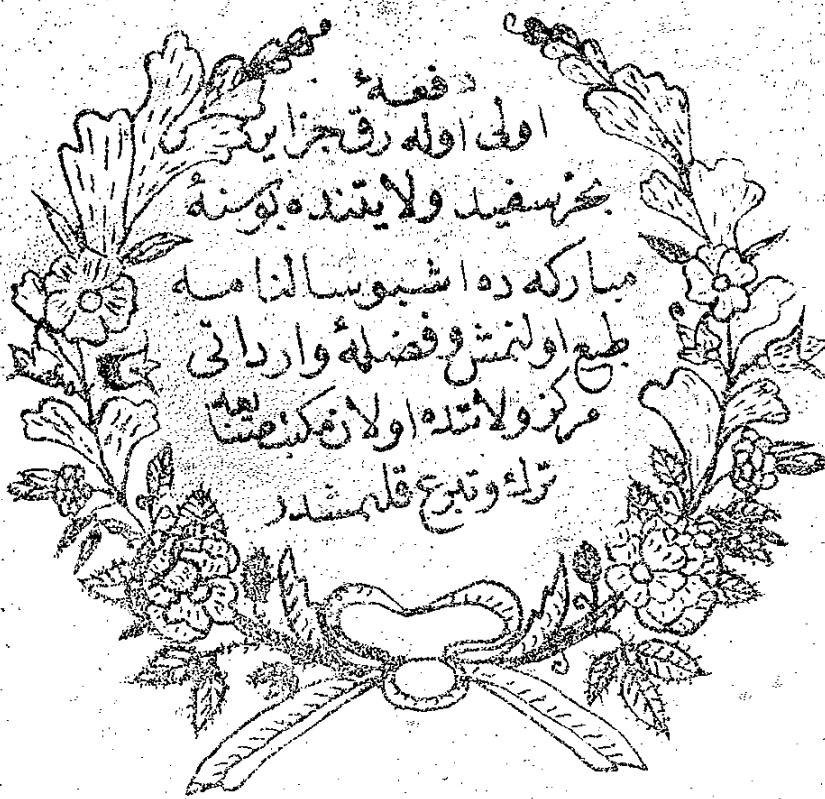 دفعهٔ
اولی اوله رق جزایر
بحرسفید ولایتنده بوسنهٔ
مبارکه ده اشبوسالنامه
طبع اولنمش و فضلهٔ وارداتی
مرکز ولایتده اولان مکتب صنایعه
ترك وتبرع قلنمشدر